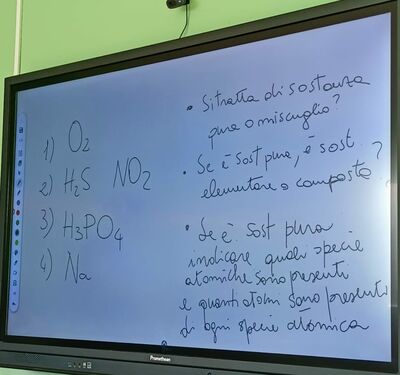 1) O2
2) H2S NO2
3) H3PO4
4) Na
• Si tratta di sostanza
pura o miscuglio?
• Se è sost pura, è sost
elementare o composta?
• Se è sost pura
indicare quali specie
atomiche sono presenti
e quanti atomi sono presenti
di ogni specie atomica
Promethean